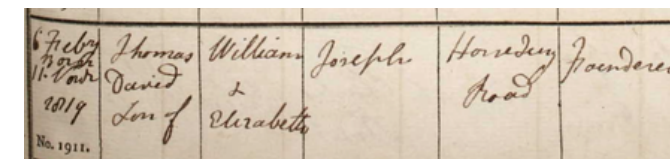 6 Feby
Born
11. Novr
1819
No. 1911.
Thomas
David
Son of
William
&
Elizabeth
Joseph
Road
Founderer